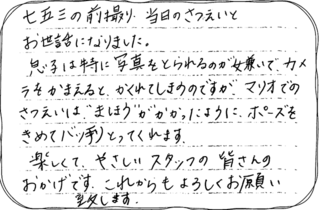 七五三の前撮り、当日のさつえいと
お世話になりました。
息子は特に写真をとられるのが嫌いで、カメ
ラをかまえると、かくれてしまうのですが、マリオでの
さつえいは"まほうがかかった"ように、ポーズを
きめてバッチリとってくれます。
楽しくて、やさしいスタッフの皆さんの
おかげです。これからもよろしくお願い
致します。